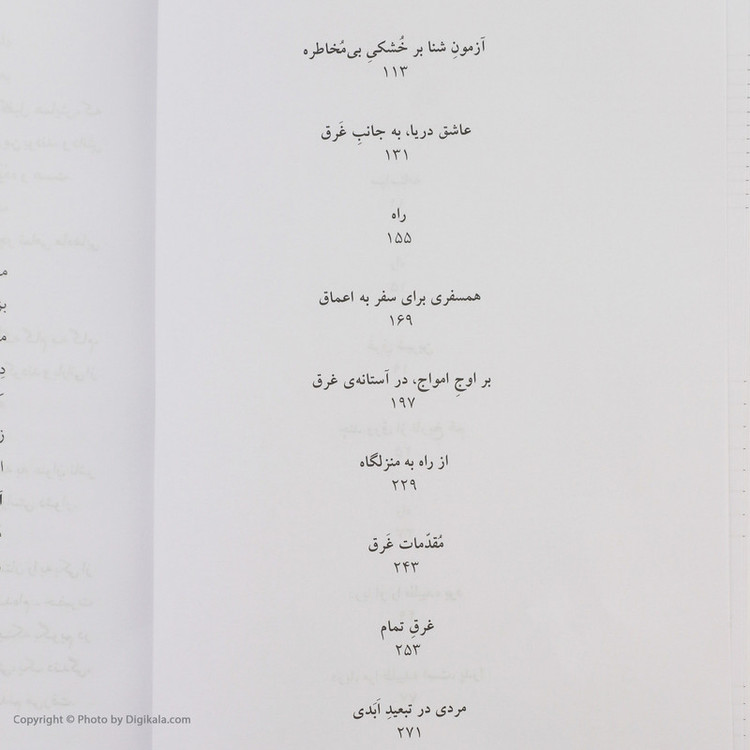 آزمونِ شنا بر خُشکیِ بی‌مُخاطره
۱۱۳
عاشق دریا، به جانبِ غَرق
۱۳۱
راه
۱۵۵
همسفری برای سفر به اعماق
۱۶۹
بر اوجِ امواج، در آستانه‌ی غرق
۱۹۷
از راه به منزلگاه
۲۲۹
مُقدّمات غَرق
۲۴۳
غرقِ تمام
۲۵۳
مردی در تبعیدِ اَبَدی
۲۷۱
Copyright © Photo by Digikala.com